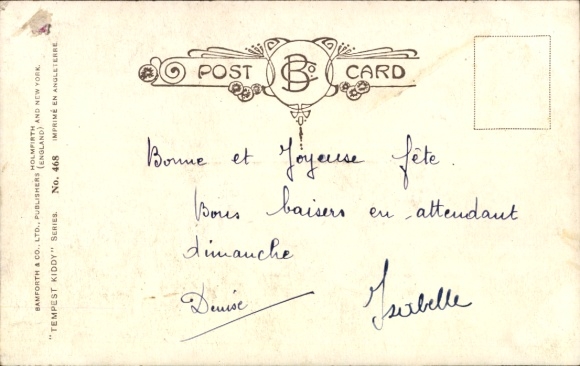 POST B Co. CARD
BAMFORTH & CO., LTD., PUBLISHERS HOLMFIRTH AND NEW YORK.
(ENGLAND)
"TEMPEST KIDDY" SERIES. No. 468 IMPRIMÉ EN ANGLETERRE
Bonne et Joyeuse fête.
Bons baisers en attendant
dimanche
Denise Isabelle